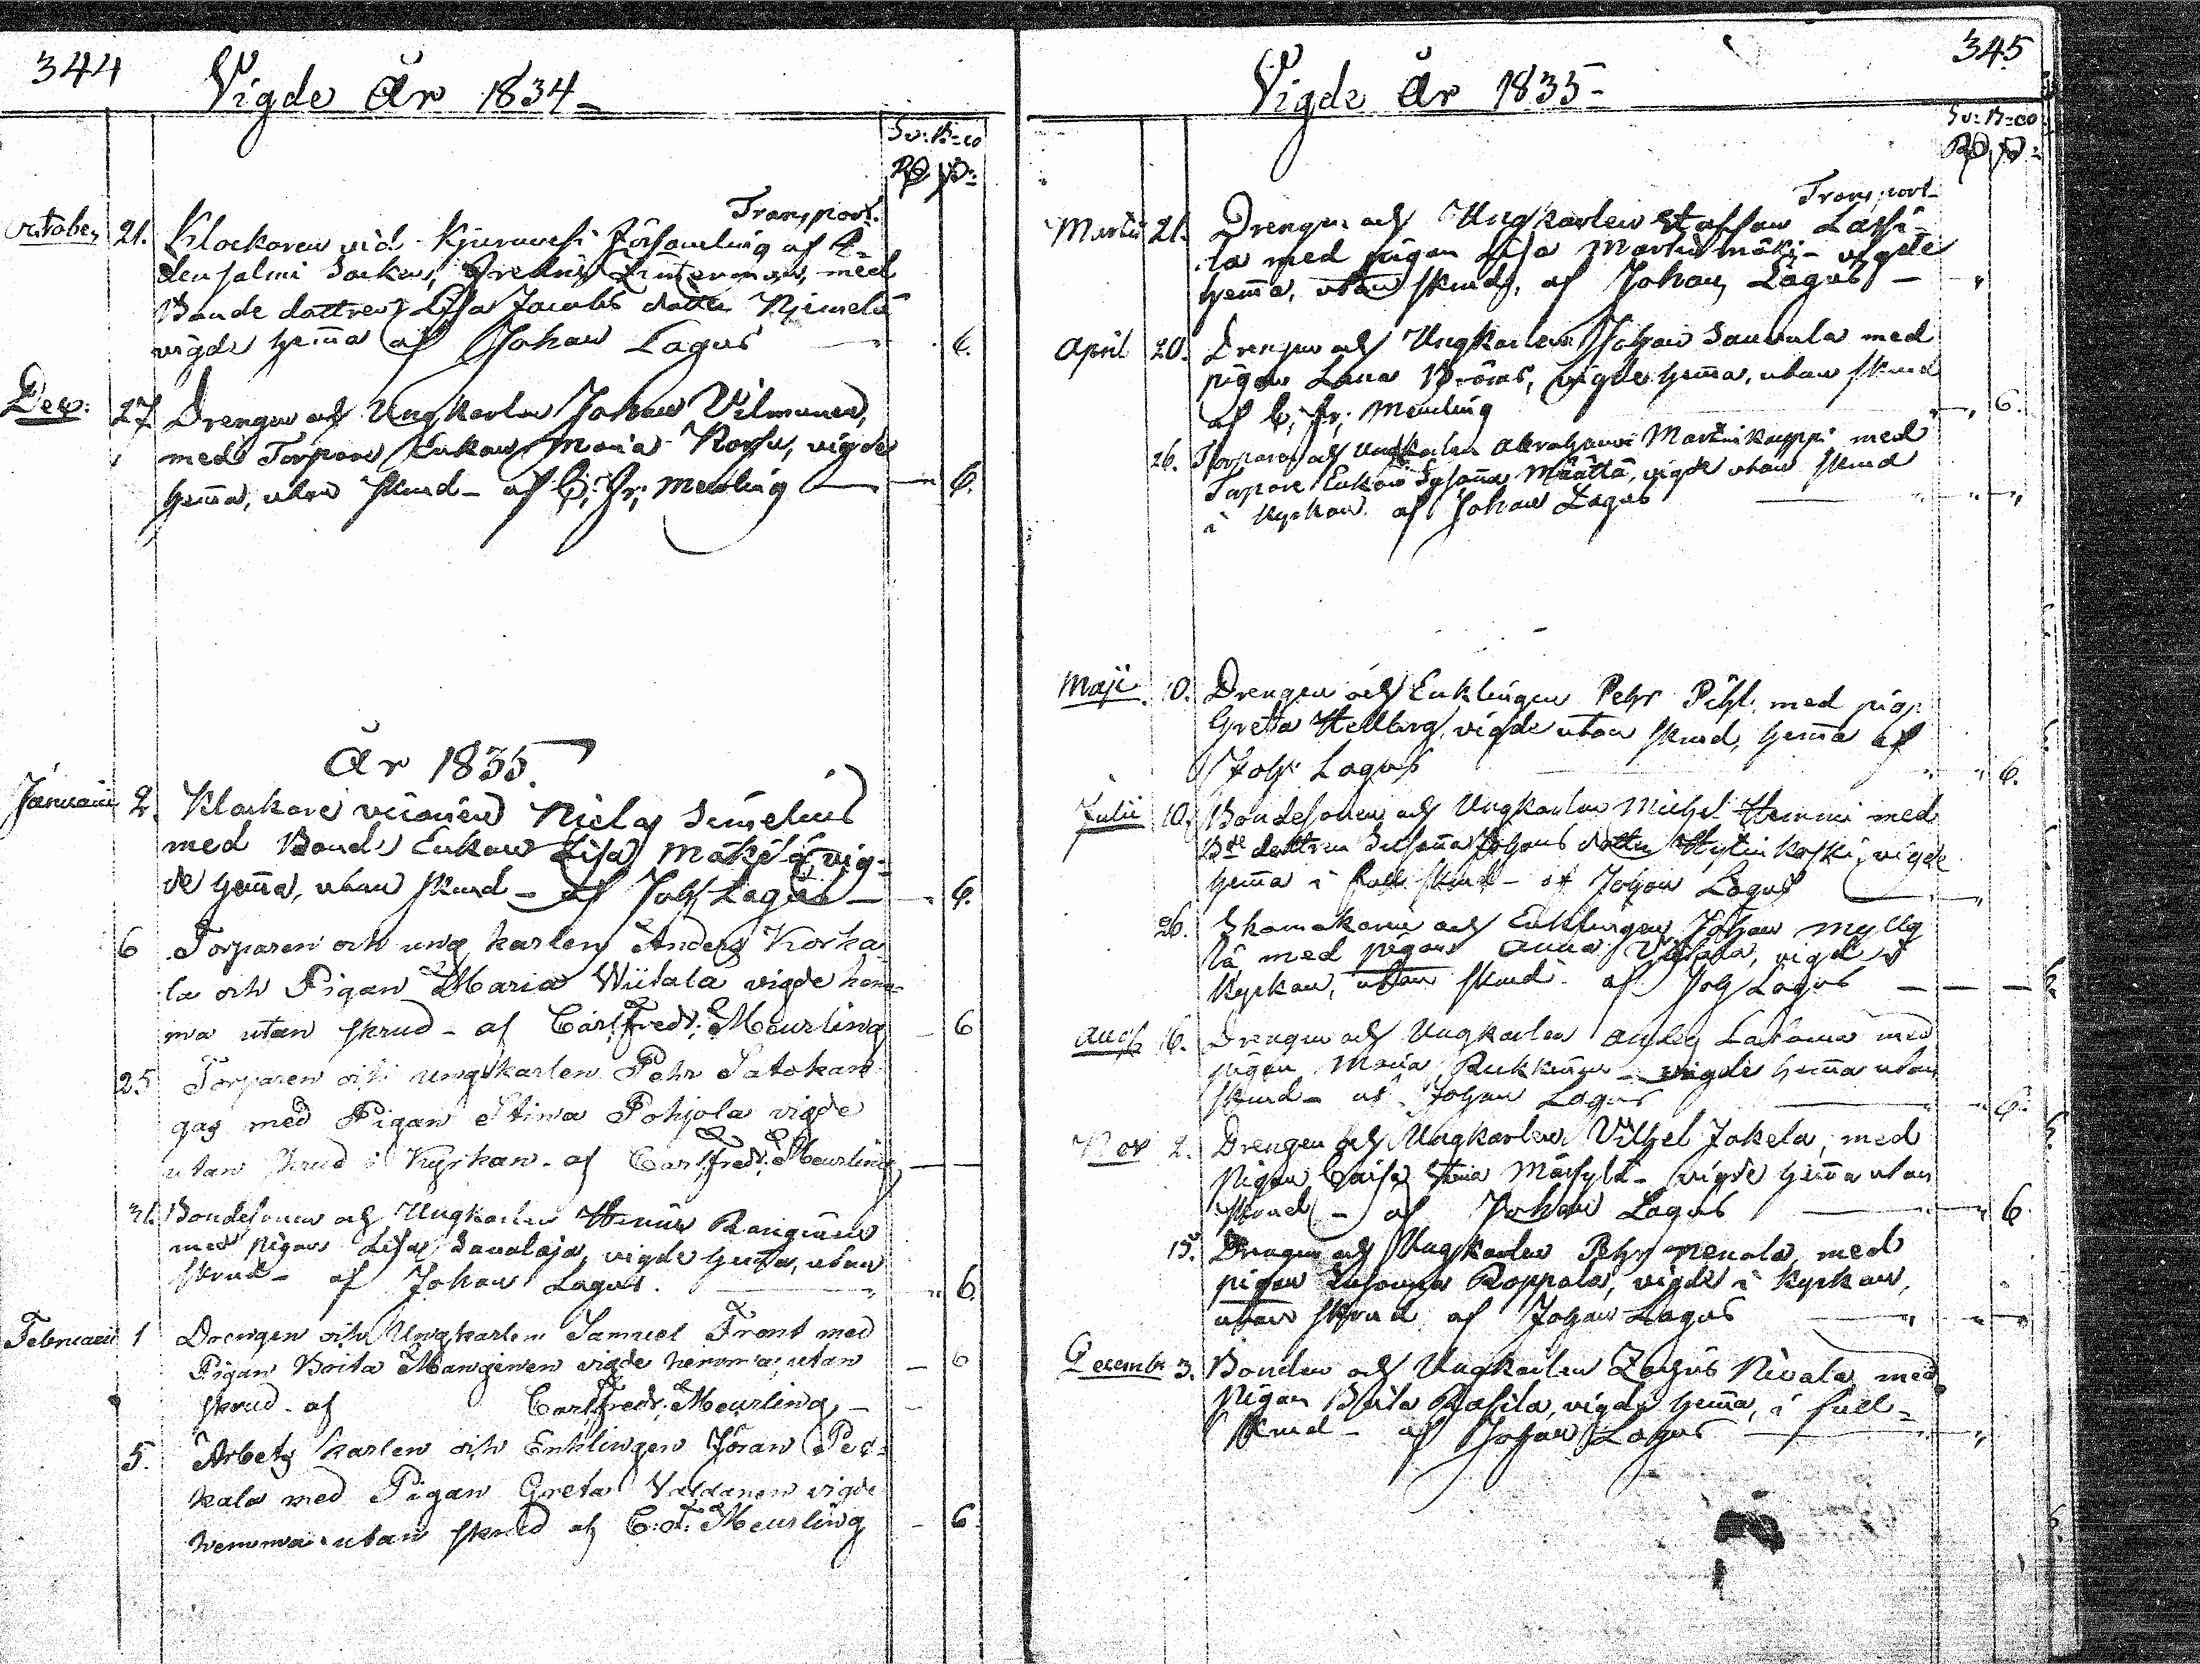 344
Vigde År 1834
Sv: B=co
Rd ß:
Transport.
October 21. Klockaren vid Kjuruvesi Församling af I-
densalmi Socken, Fredric Linterman, med
Bonde dottren Lisa Jacobs dotter Niemelä
vigde hem̄a af Johan Lagus 6.
Dec: 27 Drengen och Ungkarlen Johan Vilmunen,
med Torpare Enkan Maria Korsu, vigde
hem̄a, utan skrud - af C. Fr. Meurling 6.
År 1835
Januarii 2. Klockare Niclas Simelius
med Bonde Enkan Lisa Mäkelä vig-
de hem̄a, utan skrud - af Joh Lagus 6.
6 Torparen och ung karlen Anders Korka
la och Pigan Maria Wiitala vigde hem-
ma utan skrud - af Carl Fredr. Meurling 6
25 Torparen och ungkarlen Pehr Satokan
gas med Pigan Stina Pohjola vigde
utan skrud i Kyrkan - af Carl Fredr. Meurling
31. Bondesonen och Ungkarlen Henric Ranginen
med pigan Lisa Savaloja, vigde hem̄a, utan
skrud - af Johan Lagus. 6
Februarii 1 Drengen och Ungkarlen Samuel Frant med
Pigan Brita Manginen vigde hemma utan 6
skrud - af Carl Fredr. Meurling
5. Arbets karlen och Enklingen Jöran Pes-
kala med Pigan Greta Valdanen vigde
hemma utan skrud af C. F. Meurling 6
345
Vigde År 1835
Sv: B=co
Rd ß:
Transport
Martii 21. Drengen och Ungkarlen Staffan Lassi-
la med pigan Lisa Martinmäki - vigde
hem̄a, utan skrud, af Johan Lagus
April 20. Drengen och Ungkarlen Johan Sauvula med
pigan Lena Bröms, vigde hem̄a, utan skrud
af C. Fr. Meurling 6.
26. Torparen och Ungkarlen Abraham Martinkauppi med
Torpare Enkan Susanna Määttä, vigde utan skrud
i Kyrkan af Johan Lagus
Maji 10. Drengen och Enklingen Pehr Pihl, med pig:
Greta Hellberg, vigde utan skrud, hem̄a af
Joh. Lagus 6.
Julii 10. Bondesonen och Ungkarlen Michel Hemmi med
Bde dottren Susanna Johans dotter Hylinkoski, vigde
hem̄a i full skrud - af Johan Lagus
26. Skomakaren och Enklingen Johan Mylly
lä med pigan Anna Viitala, vigde i
Kyrkan, utan skrud. af Joh Lagus
Aug 16. Drengen och Ungkarlen Anders Latoma med
pigan Maria Rukkinen - vigde hem̄a utan
skrud - af Johan Lagus 6.
Nov 2. Drengen och Ungkarlen Vilhel Jakela, med
Pigan Caisa Stina Märsylä - vigde hem̄a utan
skrud - af Johan Lagus 6
15. Drengen och Ungkarlen Pehr Nenola, med
pigan Susanna Roppola, vigde i Kyrkan,
utan skrud af Johan Lagus
December 3. Bonden och Ungkarlen Zachris Nivala, med
Pigan Brita Rasila, vigde hem̄a, i full-
skrud - af Johan Lagus